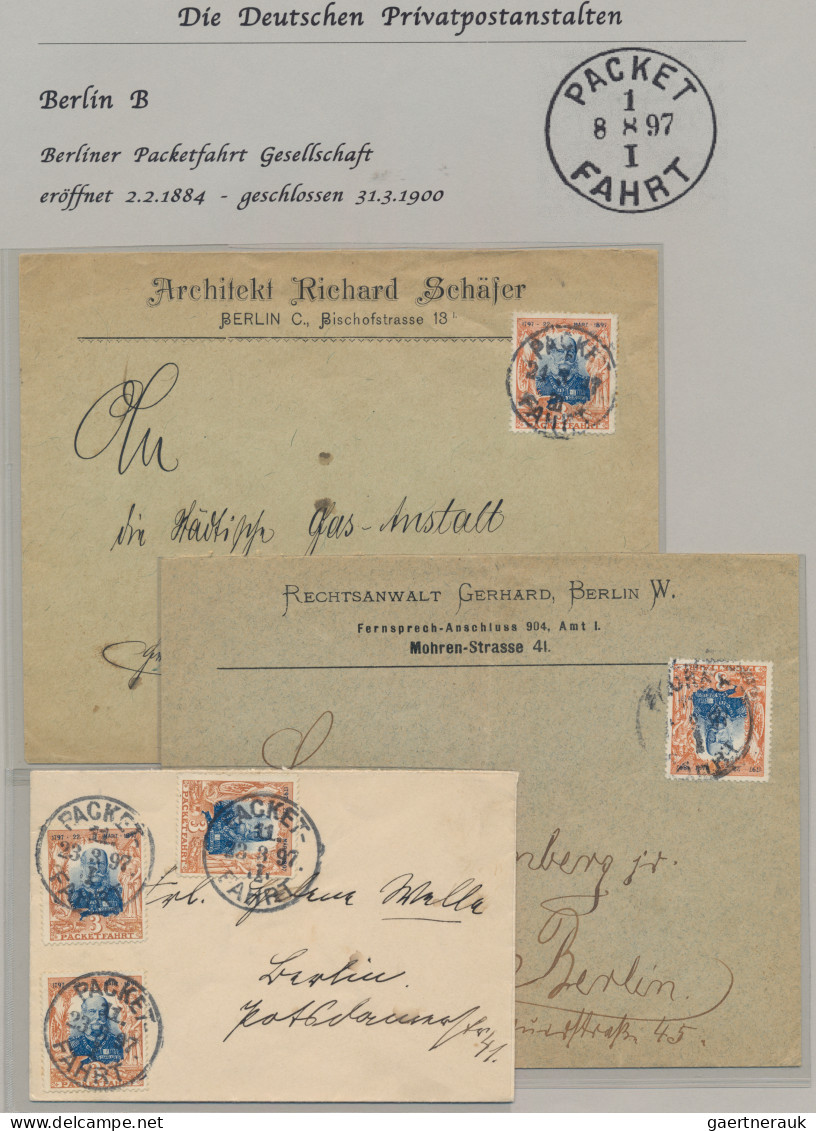 Die Deutschen Privatpostanstalten
Berlin B
Berliner Packetfahrt Gesellschaft
eröffnet 2.2.1884 - geschlossen 31.3.1900
PACKET
1
8 8 97
I
FAHRT
Architekt Richard Schäfer
BERLIN C., Bischofstrasse 13
PACKET
FAHRT
PACKETFAHRT
An
die Städtische Gas-Anstalt
RECHTSANWALT GERHARD, BERLIN W.
Fernsprech-Anschluss 904, Amt I.
Mohren-Strasse 41.
PACKETFAHRT
berg jr.
Berlin.
45.
PACKET-
11.
23.3.97.
3
PACKETFAHRT
PACKET-
11.
3.97.
I.
FAHRT
3
PACKETFAHRT
Frl. Helene Welle
Berlin.
Potsdamerstr. 41.
PACKET-
11.
FAHRT
delcampe.net
gaertnerauk